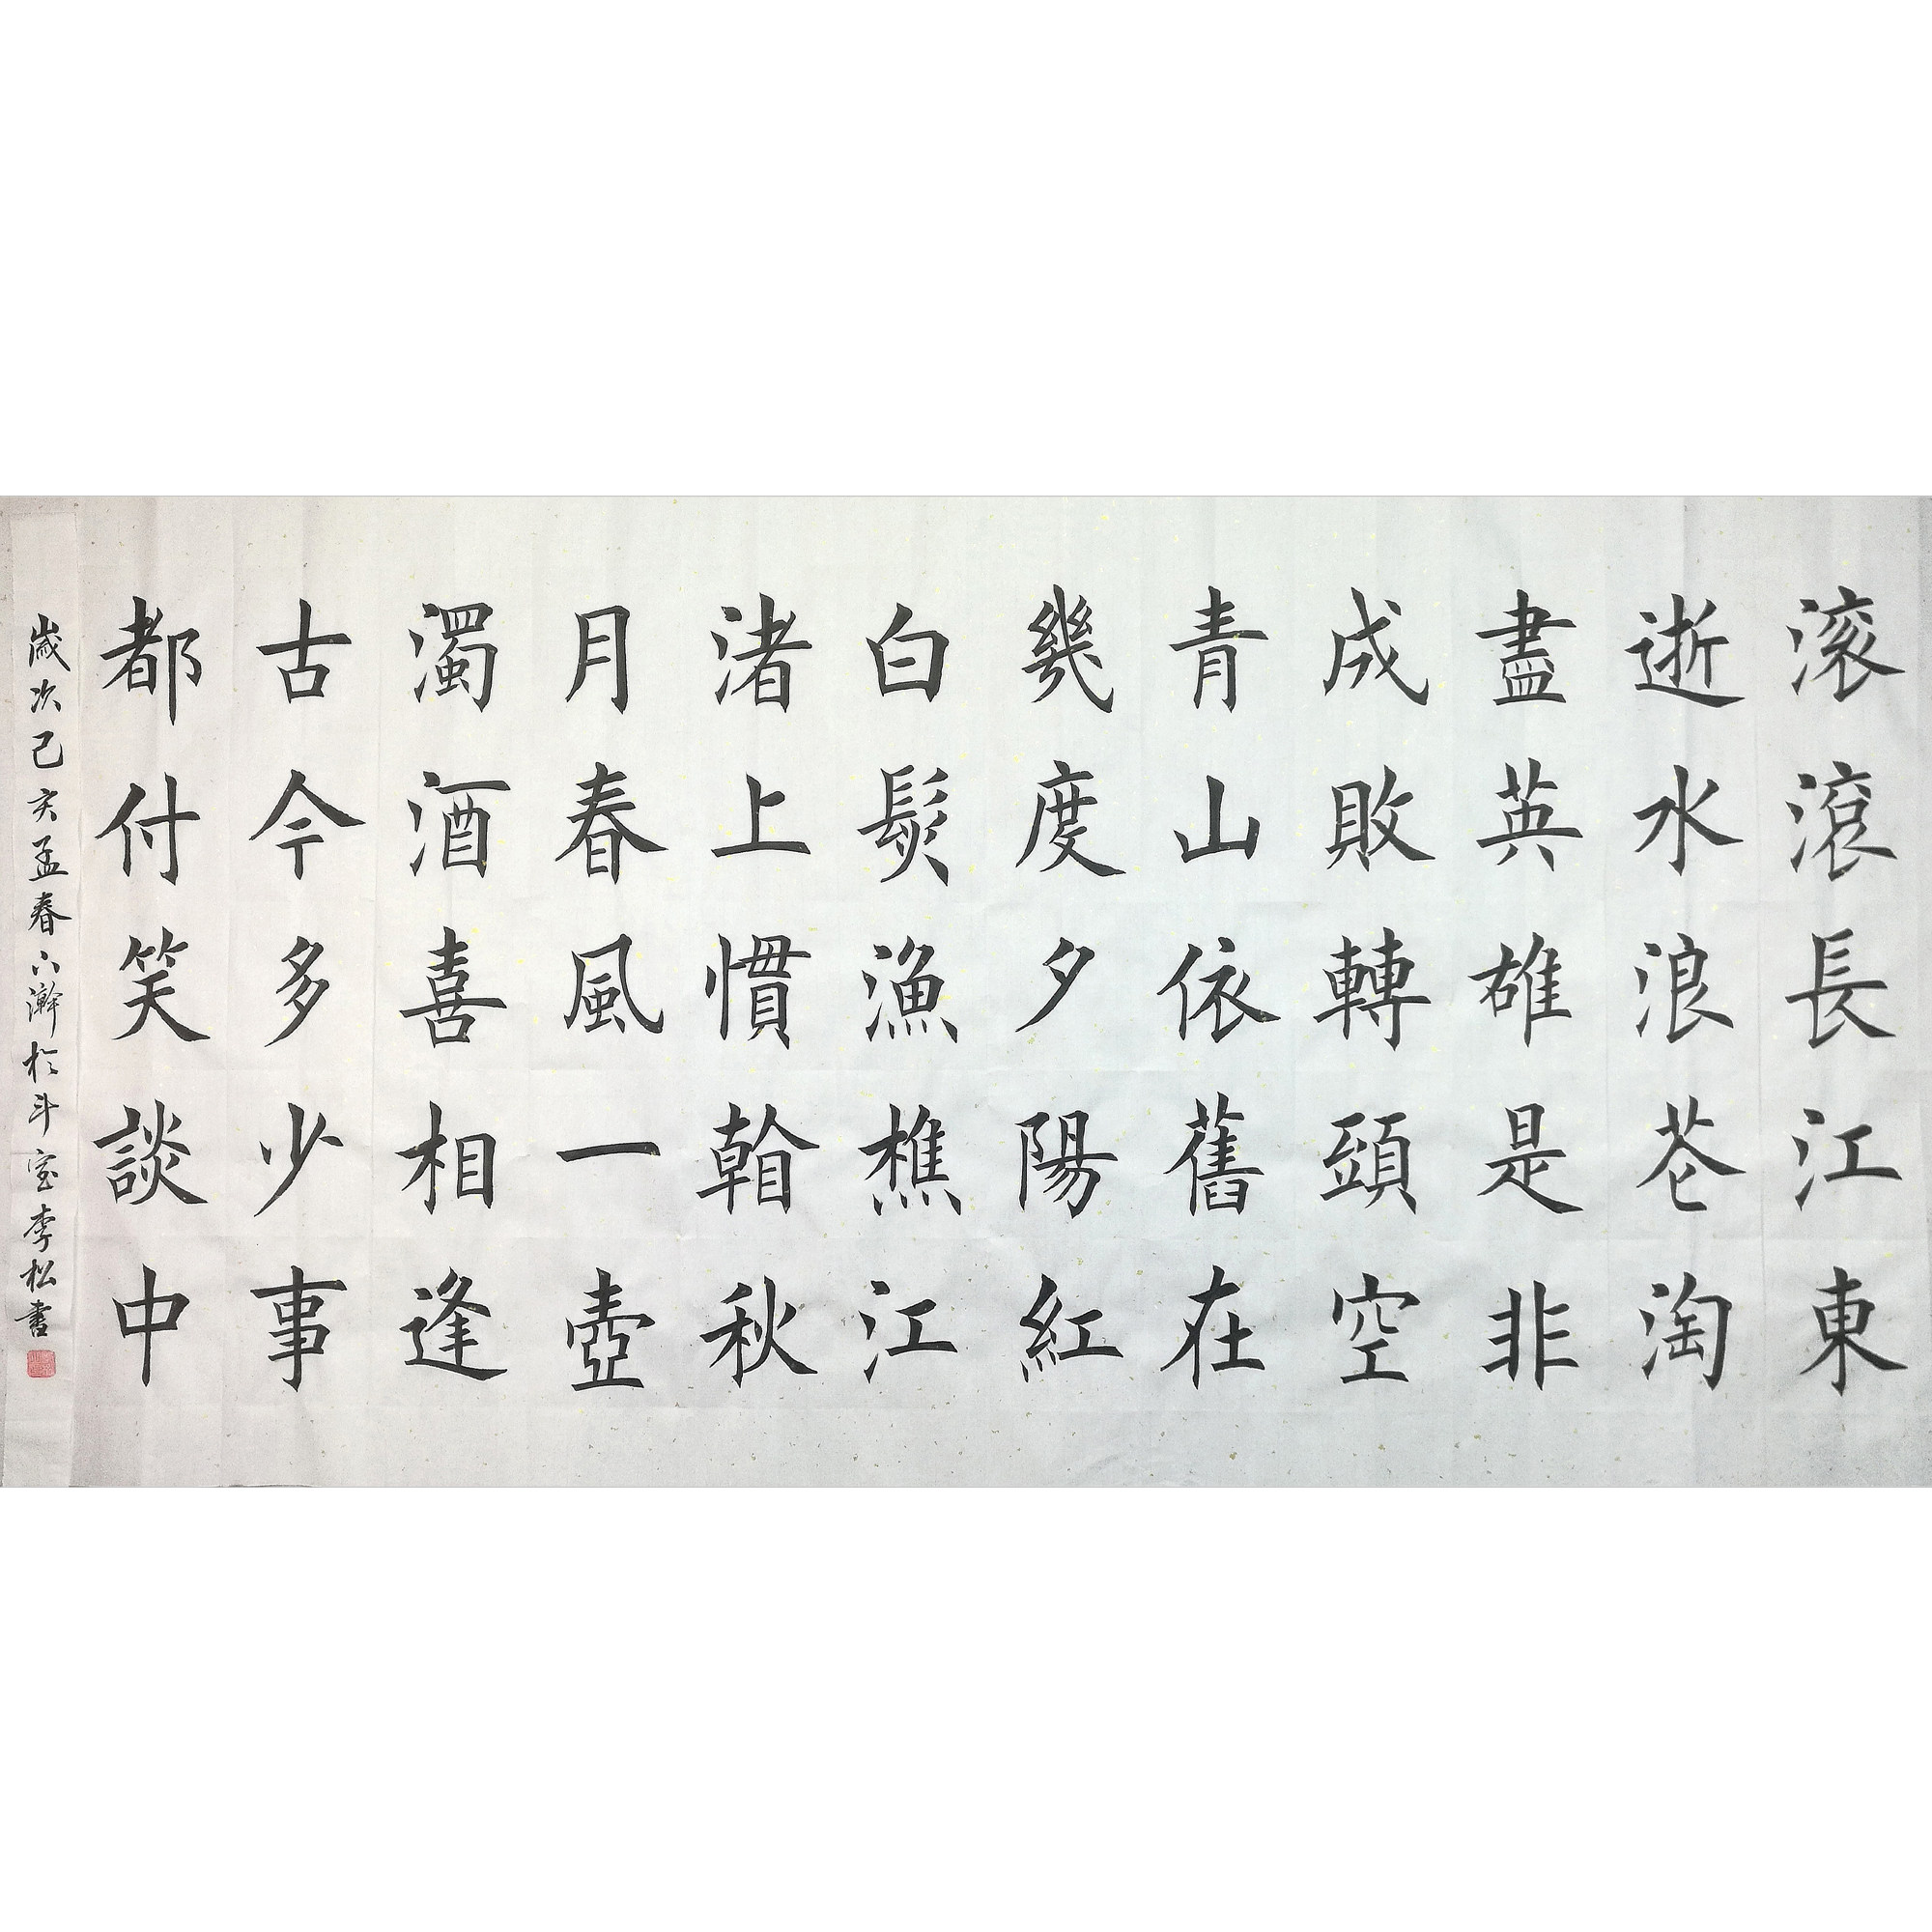 滚滾長江東
逝水浪花淘
盡英雄是非
成敗轉頭空
青山依舊在
幾度夕陽紅
白髮漁樵江
渚上慣看秋
月春風一壺
濁酒喜相逢
古今多少事
都付笑談中
歲次己亥孟春下澣於斗室李松書